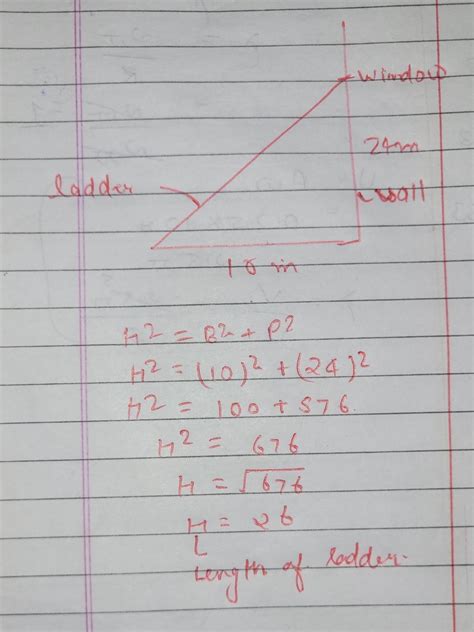 window
24m
ladder
wall
10 m
H² = B² + P²
H² = (10)² + (24)²
H² = 100 + 576.
H² = 676
H = √676
H = 26
Length of ladder.